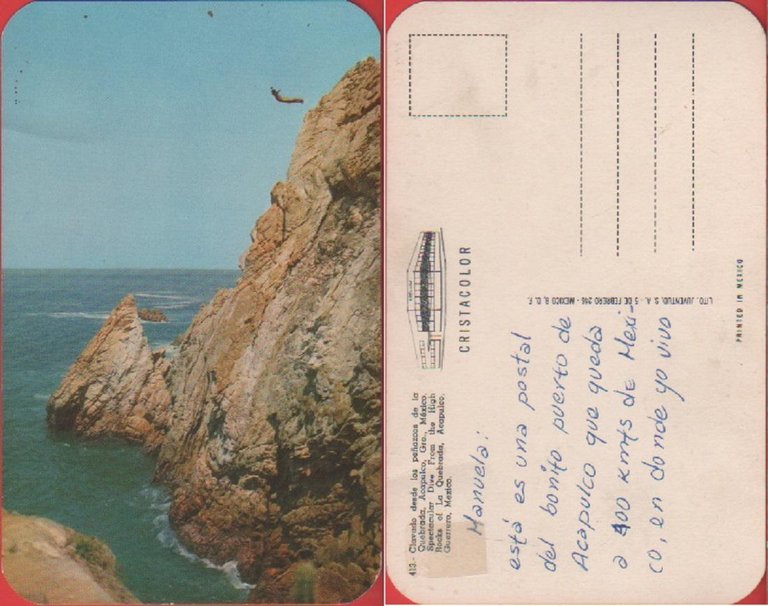 413.- Clavado desde los peñascos de la
Quebrada, Acapulco, Gro., México.
Spectacular Dive From the High
Rocks of La Quebrada, Acapulco,
Guerrero, Mexico.
CRISTACOLOR
LITO. JUVENTUD, S. A. - 5 DE FEBRERO 246 - MEXICO 8, D. F.
PRINTED IN MEXICO
Manuela:
está es una postal
del bonito puerto de
Acapulco que queda
a 400 Kmts de Mexi-
co, en donde yo vivo